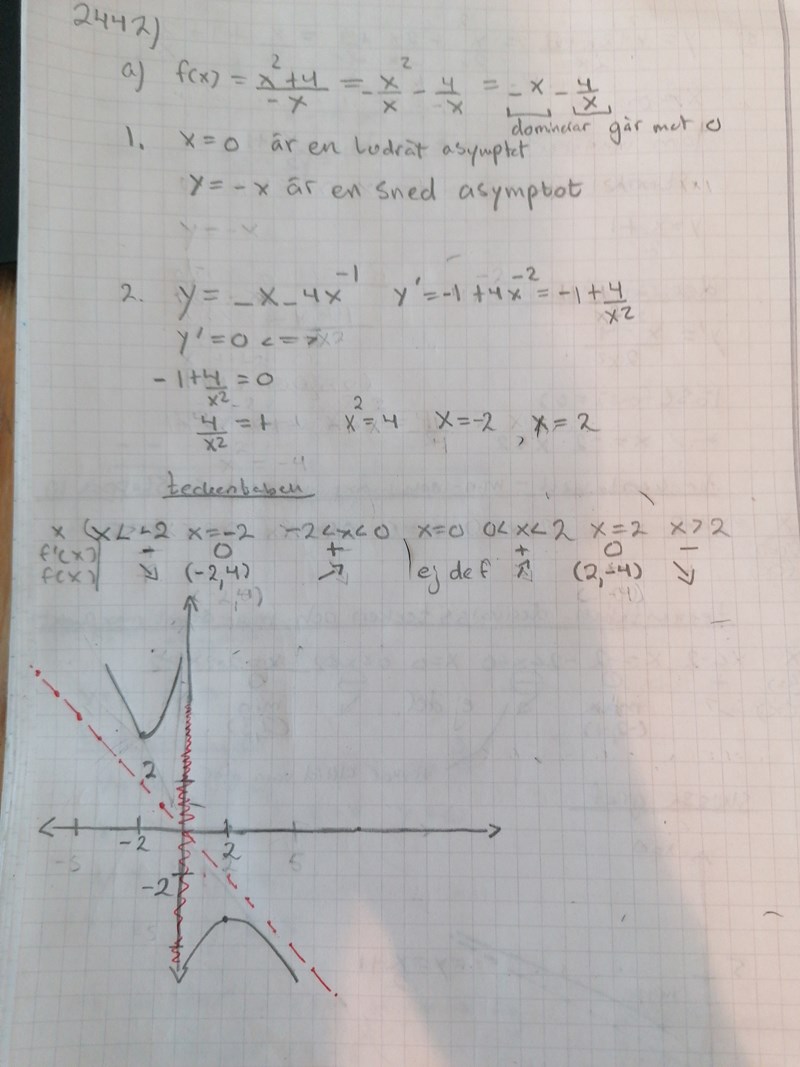 2442)
a) f(x) = x²+4 / -x = - x²/x - 4/-x = -x - 4/x
dominerar går mot 0
1. x=0 är en lodrät asymptot
y=-x är en sned asymptot
2. y = -x-4x⁻¹ y'=-1+4x⁻²=-1+4/x²
y'=0 <=>
-1+4/x²=0
4/x²=1 x²=4 x=-2, x=2
teckentabell
x x<-2 x=-2 -2<x<0 x=0 0<x<2 x=2 x>2
f'(x) - 0 + + 0 -
f(x) ↘ (-2,4) ↗ ej def ↗ (2,-4) ↘
2
-5 -2 2 5
-2